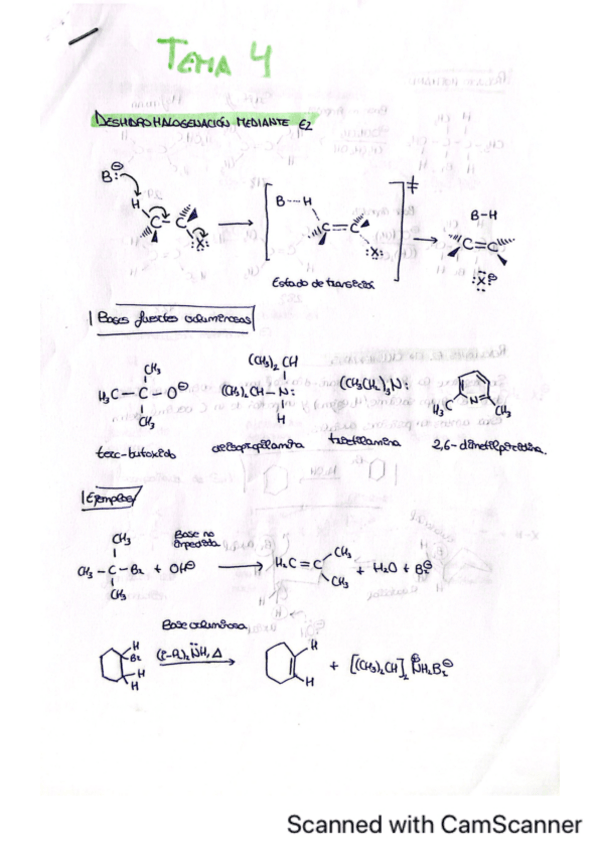 TEMA 4
DESHIDROHALOGENACIÓN MEDIANTE E2
B:⊖
H
C=C
:X:
B---H
C=C
:X:
≠
Estado de transición
B-H
C=C
:X:⊖
Bases fuertes voluminosas
CH₃
H₃C-C-O⊖
CH₃
terc-butóxido
(CH₃)₂CH
(CH₃)₂CH-N:
H
diisopropilamina
(CH₃CH₂)₃N:
trietilamina
H₃C N CH₃
2,6-dimetilpiridina.
Ejemplos
CH₃ Base no impedida CH₃
CH₃-C-Br + OH⊖ → H₂C=C + H₂O + Br⊖
CH₃ CH₃
Base voluminosa
H
Br
H
H
(i-Pr)₂NH, Δ
H
H
+ [(CH₃)₂CH]₂NH₂Br⊖
Scanned with CamScanner